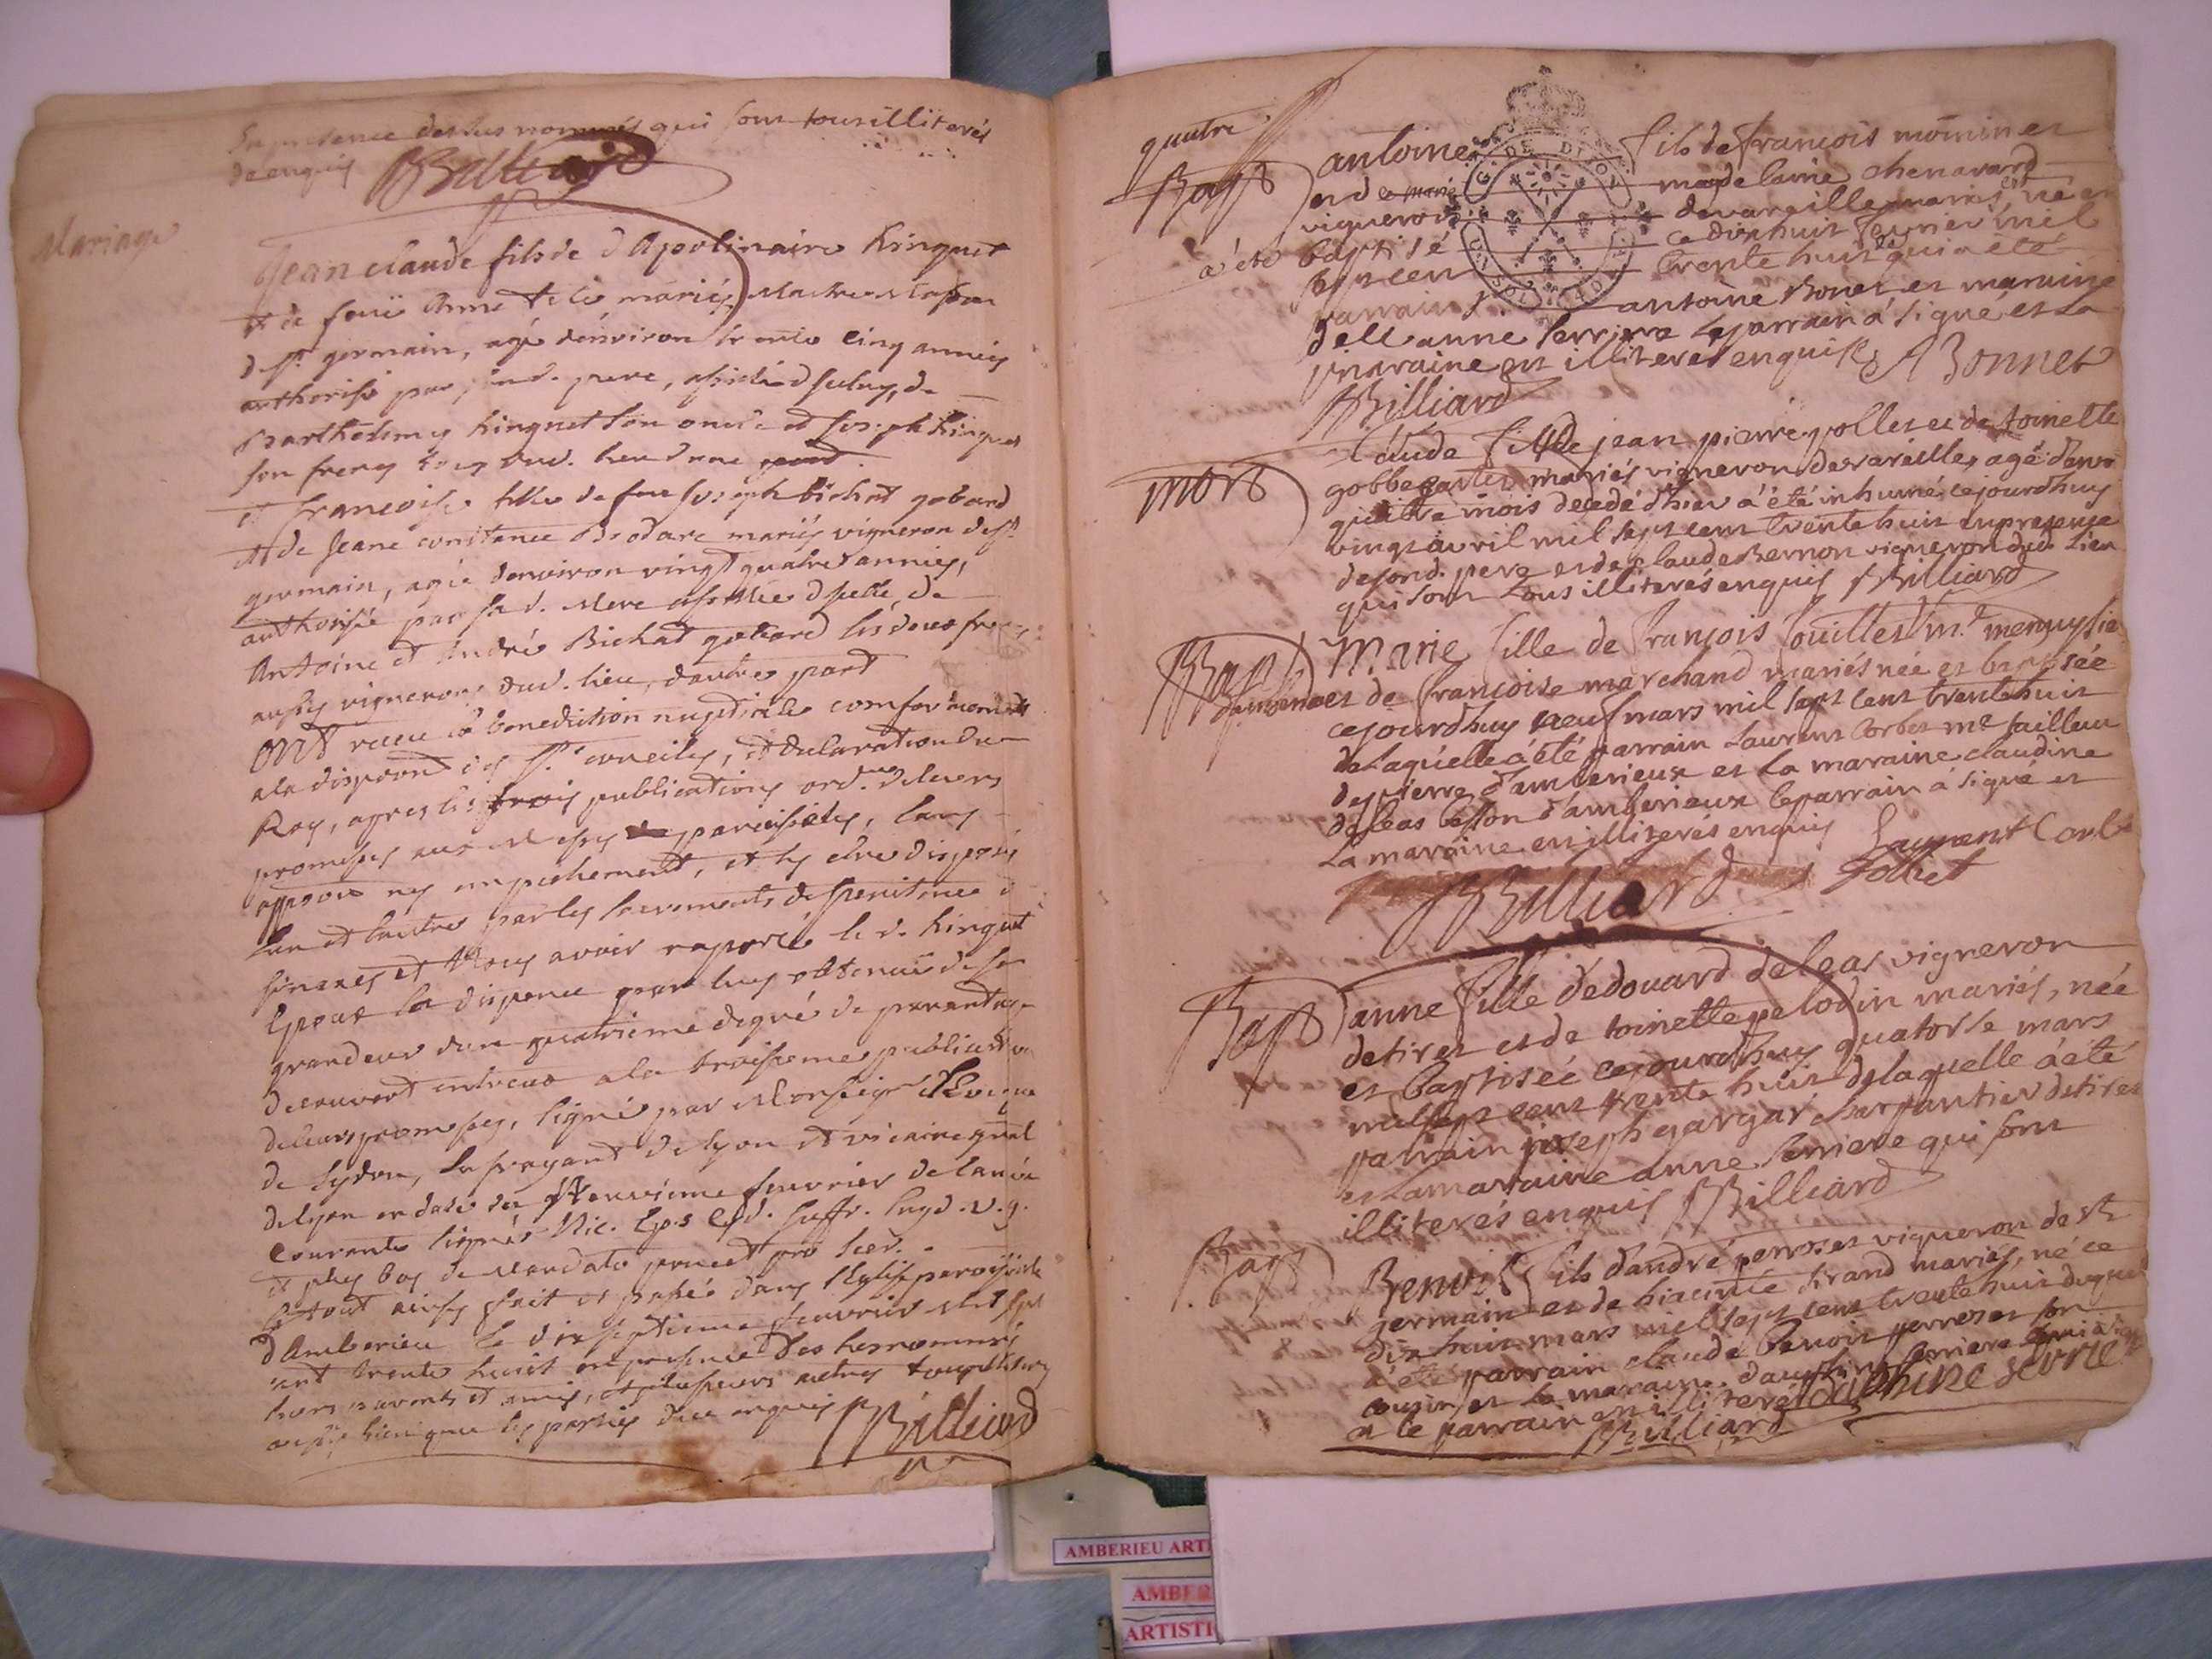 En presence dessus nommés qui sont tous illiterés
de enquis Billiard
Mariage
Jean claude fils de d Apolinaire hinguet
et de feüe Anne mariés, Maitre Masson
d St germain, agé denviron trente cinq années
authorisé par sond. pere, assisté d de
Barthelemy hinguet son oncle et Joseph hinguet
son frere, dud. lieu dune part
et francoise fille de feu Joseph bichat gobard
et de Jeane constance Brodare mariés vigneron de St
germain, agée denviron vingt quatre années,
authorisée par sa d. Mere assistée d de
Antoine et André Bichat gobard ses deux freres
aussy vignerons dud. lieu, dautre part
ONT receu la benediction nuptiale conformement
a la dispoon des Sts conciles, et declaration du
Roy, apres les trois publications ord. de leurs
promesses aux Messes paroissiales, sans
oppoon ny empechement, et s'y etre disposés
lun et lautre par les sacrements de penitence
et Nous avoir raporté le d. hinguet
Epoux la dispence par luy obtenuë de sa
grandeur dun quatrieme degré de parantage
decouvert entreux a la troisieme publication
de leurs promesses, signé par Monseigr L'Eveque
de Sydon, suffragant de lyon et vicaire gnâl
de lyon en date du Neuvieme fevrier de lanée
courante signés Nic. Eps Syd. suff. lugd. v. g.
et plus bas de Mandato
Le tout ainsy fait et passé dans l'Eglise paroissiale
d'Amberieu le dix septieme feuvrier Mil sept
cent trente huit en presence des susnommés
leurs parents et amis, et plusieurs autres tous illiterés
aussy bien que les parties de ce enquis Billiard
quatre
Bapt
antoine fils de françois momin et
magdelaine chenavard
mariés
vigneron de vareille né
a été baptisé ce dix huit fevrier mil
sept cent trente huit qui a eté
parrain antoine Bonet et maraine
dell anne serriere le parrain a signé et la
maraine est illiteree enquise A Bonnet
Billiard
mort
Claude fils de jean pierre gollet et de toinette
gobbe mariés vigneron de vareille, agé denv
quatre mois decedé d'hier a été inhumé cejourdhuy
vingt avril mil sept cent trente huit en presence
de sond. pere et de claude Bernon vigneron dud. lieu
qui sont tous illiterés enquis Billiard
Bapt
Marie fille de françois Souillet mt menuysie
et de françoise marchand mariés née et baptisée
cejourdhuy neuf mars mil sept cent trente huit
de laquelle a été parrain laurent Corbet mt tailleur
de pierre d'amberieux et la maraine claudine
deleas besson d'amberieux le parrain a signé et
la maraine en illiterés enquis Laurent Corbe
Billiard Jolliet
Bapt
anne fille d'edouard deleas vigneron
de tiret et de toinette pelodin mariés, née
et baptisée cejourdhuy quatorse mars
mil sept cent trente huit de laquelle a été
parrain joseph gargar charpantier de tiret
et la maraine anne serriere qui sont
illiterés enquis Billiard
Bapt
Benoit fils d'andré perroset vigneron de st
germain et de hiacinte tirand mariés, né ce
dix huit mars mil sept cent trente huit duquel
a été parrain claude Benoit perroset son
cousin et la maraine dauphine serriere qui a signé
et le parrain en illiteré dauphine serrie
Billiard
AMBERIEU ARTI
AMBER
ARTISTI